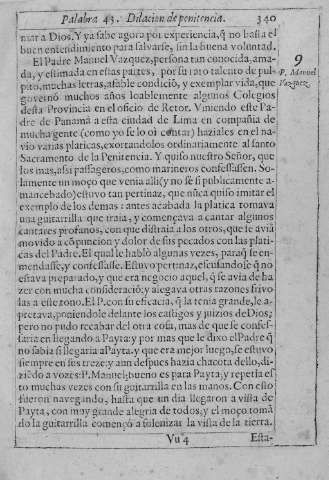 Palabra 43. Dilacion de penitencia. 340
mar a Dios. Y ya sabe agora por experiencia, q̃ no basta el
buen entendimiento para salvarse, sin la buena voluntad.
El Padre Manuel Vazquez, persona tan conocida, ama-
da, y estimada en estas partes, por su raro talento de pul-
pito, muchas letras, afable condiciõ, y exemplar vida, que
governò muchos años loablemente algunos Colegios
desta Provincia en el oficio de Retor. Viniendo este Pa-
dre de Panamà a esta ciudad de Lima en compañia de
mucha gente (como yo se lo oi contar) haziales en el na-
vio varias platicas, exortandolos ordinariamente al santo
Sacramento de la Penitencia. Y quiso nuestro Señor, que
los mas, assi passageros, como marineros confessassen. So-
lamente un moço que venia alli (y no sè si publicamente a-
mancebado) estuvo tan pertinaz, que nũca quiso imitar el
exemplo de los demas: antes acabada la platica tomava
una guitarrilla que traia, y començava a cantar algunos
cantares profanos, con que distraia a los otros, que le avia
movido a cõpuncion y dolor de sus pecados con las plati-
cas del Padre. El qual le hablò algunas vezes, paraq̃ se en-
mendasse, y confessasse. Estuvo pertinaz, escusandose q̃ no
estava preparado, y que era negocio aquel, q̃ se avia de ha-
zer con mucha consideraciõ: y alegava otras razones frivo-
las a este tono. El P. con su eficacia, q̃ la tenia grande, le a-
pretava, poniendole delante los castigos y juizios de Dios;
pero no pudo recabar del otra cosa, mas de que se confes-
saria en llegando a Payta: y por mas que le dixo el Padre q̃
no sabia si llegaria a Payta, y que era mejor luego, se estuvo
siempre en sus treze: y aun despues hazia chacota dello, di-
ziẽdo a vozes: P. Manuel, bueno es para Payta; y repetia es-
to muchas vezes con su guitarrilla en las manos. Con esto
fueron navegando, hasta que un dia llegaron a vista de
Payta, con muy grande alegria de todos, y el moço toman-
do la guitarrilla començò a solenizar la vista de la tierra.
Vu 4 Esta-
9
P. Manuel
Vazquez.